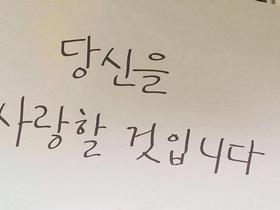 당신을
사랑할 것입니다